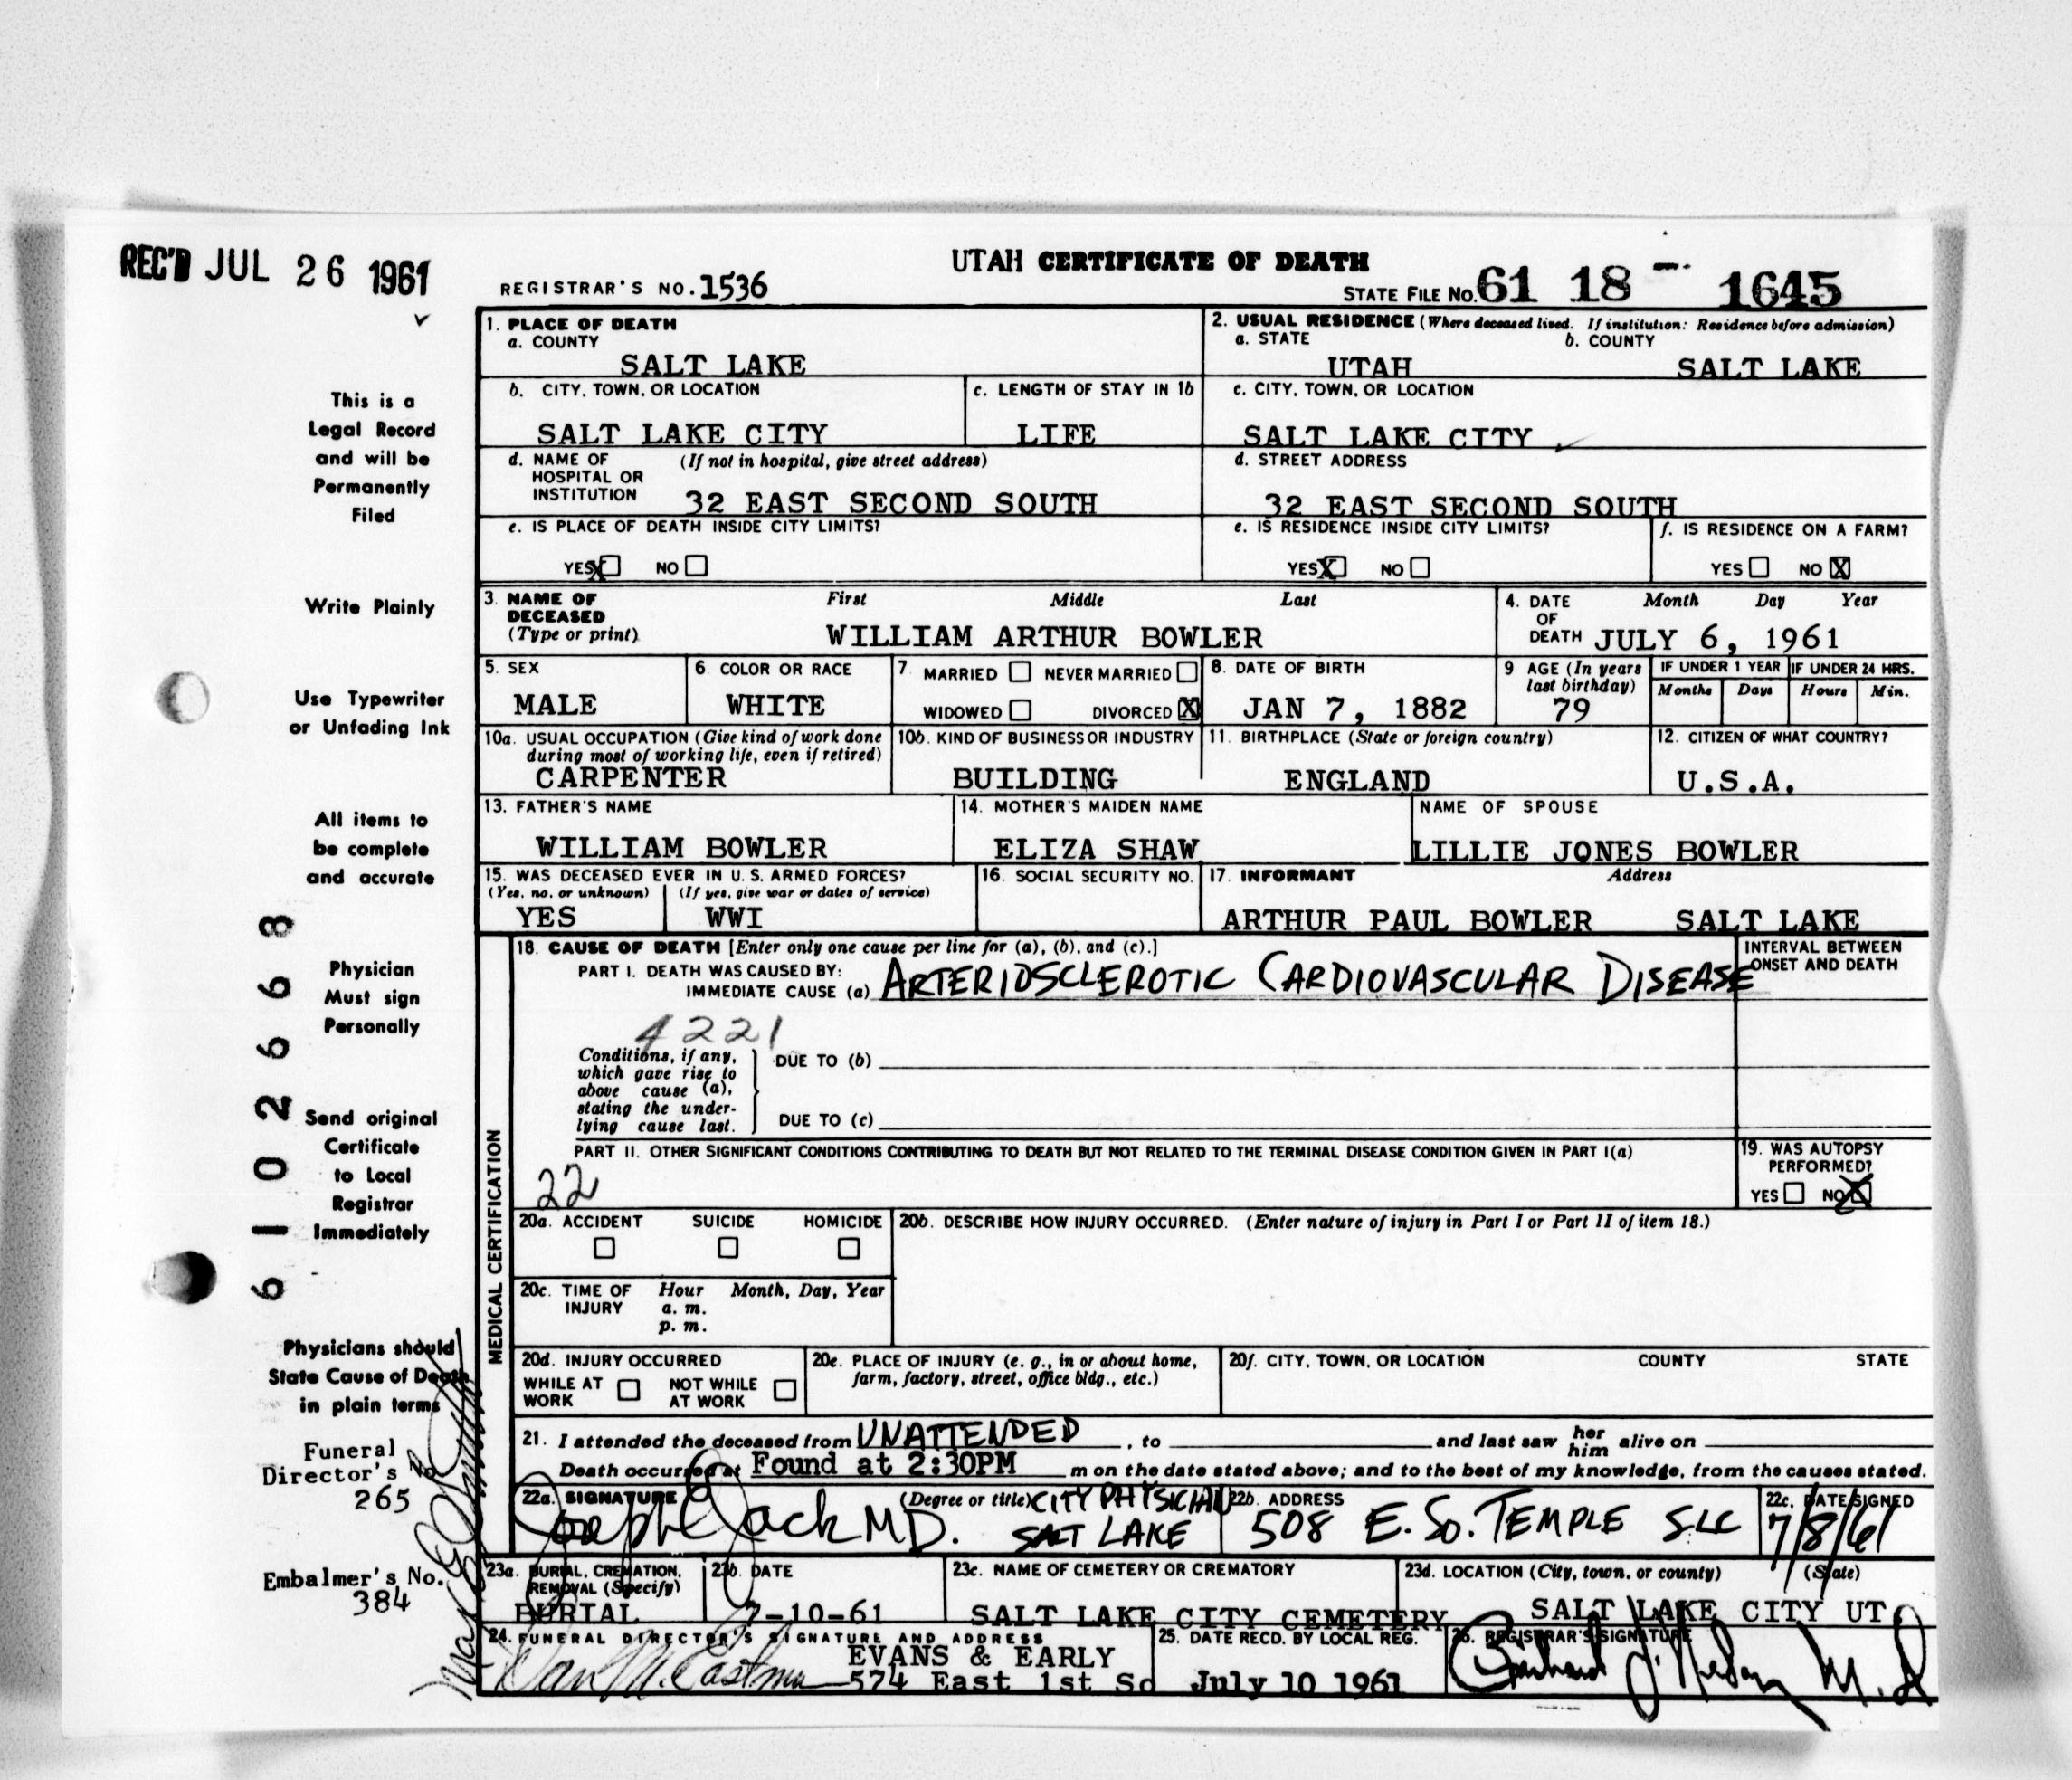 REC'D JUL 26 1961
UTAH CERTIFICATE OF DEATH
REGISTRAR'S NO. 1536
STATE FILE NO. 61 18 - 1645
1. PLACE OF DEATH
a. COUNTY
SALT LAKE
2. USUAL RESIDENCE (Where deceased lived. If institution: Residence before admission)
a. STATE b. COUNTY
UTAH SALT LAKE
b. CITY, TOWN, OR LOCATION
SALT LAKE CITY
c. LENGTH OF STAY IN 1b
LIFE
c. CITY, TOWN, OR LOCATION
SALT LAKE CITY
d. NAME OF (If not in hospital, give street address)
HOSPITAL OR
INSTITUTION 32 EAST SECOND SOUTH
d. STREET ADDRESS
32 EAST SECOND SOUTH
e. IS PLACE OF DEATH INSIDE CITY LIMITS?
YES X NO
e. IS RESIDENCE INSIDE CITY LIMITS?
YES X NO
f. IS RESIDENCE ON A FARM?
YES NO X
3. NAME OF First Middle Last
DECEASED
(Type or print) WILLIAM ARTHUR BOWLER
4. DATE Month Day Year
OF
DEATH JULY 6, 1961
5. SEX
MALE
6. COLOR OR RACE
WHITE
7. MARRIED NEVER MARRIED
WIDOWED DIVORCED X
8. DATE OF BIRTH
JAN 7, 1882
9 AGE (In years
last birthday)
79
IF UNDER 1 YEAR IF UNDER 24 HRS.
Months Days Hours Min.
10a. USUAL OCCUPATION (Give kind of work done
during most of working life, even if retired)
CARPENTER
10b. KIND OF BUSINESS OR INDUSTRY
BUILDING
11. BIRTHPLACE (State or foreign country)
ENGLAND
12. CITIZEN OF WHAT COUNTRY?
U.S.A.
13. FATHER'S NAME
WILLIAM BOWLER
14. MOTHER'S MAIDEN NAME
ELIZA SHAW
NAME OF SPOUSE
LILLIE JONES BOWLER
15. WAS DECEASED EVER IN U. S. ARMED FORCES?
(Yes, no, or unknown) (If yes, give war or dates of service)
YES WWI
16. SOCIAL SECURITY NO.
17. INFORMANT Address
ARTHUR PAUL BOWLER SALT LAKE
18. CAUSE OF DEATH [Enter only one cause per line for (a), (b), and (c).]
PART I. DEATH WAS CAUSED BY:
IMMEDIATE CAUSE (a) ARTERIOSCLEROTIC CARDIOVASCULAR DISEASE
INTERVAL BETWEEN
ONSET AND DEATH
4221
Conditions, if any,
which gave rise to
above cause (a),
stating the under-
lying cause last.
DUE TO (b)
DUE TO (c)
PART II. OTHER SIGNIFICANT CONDITIONS CONTRIBUTING TO DEATH BUT NOT RELATED TO THE TERMINAL DISEASE CONDITION GIVEN IN PART I(a)
22
19. WAS AUTOPSY
PERFORMED?
YES NO X
MEDICAL CERTIFICATION
20a. ACCIDENT SUICIDE HOMICIDE
20b. DESCRIBE HOW INJURY OCCURRED. (Enter nature of injury in Part I or Part II of item 18.)
20c. TIME OF Hour Month, Day, Year
INJURY a. m.
p. m.
20d. INJURY OCCURRED
WHILE AT NOT WHILE
WORK AT WORK
20e. PLACE OF INJURY (e. g., in or about home,
farm, factory, street, office bldg., etc.)
20f. CITY, TOWN, OR LOCATION COUNTY STATE
21. I attended the deceased from UNATTENDED , to and last saw her him alive on
Death occurred at Found at 2:30PM m on the date stated above; and to the best of my knowledge, from the causes stated.
22a. SIGNATURE (Degree or title) CITY PHYSICIAN
Joseph Jack MD. SALT LAKE
22b. ADDRESS
508 E. So. TEMPLE SLC
22c. DATE SIGNED
7/8/61
23a. BURIAL, CREMATION,
REMOVAL (Specify)
BURIAL
23b. DATE
7-10-61
23c. NAME OF CEMETERY OR CREMATORY
SALT LAKE CITY CEMETERY
23d. LOCATION (City, town, or county) (State)
SALT LAKE CITY UT
24. FUNERAL DIRECTOR'S SIGNATURE AND ADDRESS
EVANS & EARLY
574 East 1st So
25. DATE RECD. BY LOCAL REG.
July 10 1961
26. REGISTRAR'S SIGNATURE
M.D
This is a
Legal Record
and will be
Permanently
Filed
Write Plainly
Use Typewriter
or Unfading Ink
All items to
be complete
and accurate
Physician
Must sign
Personally
Send original
Certificate
to Local
Registrar
Immediately
Physicians should
State Cause of Death
in plain terms
Funeral
Director's No
265
Embalmer's No.
384
61026668